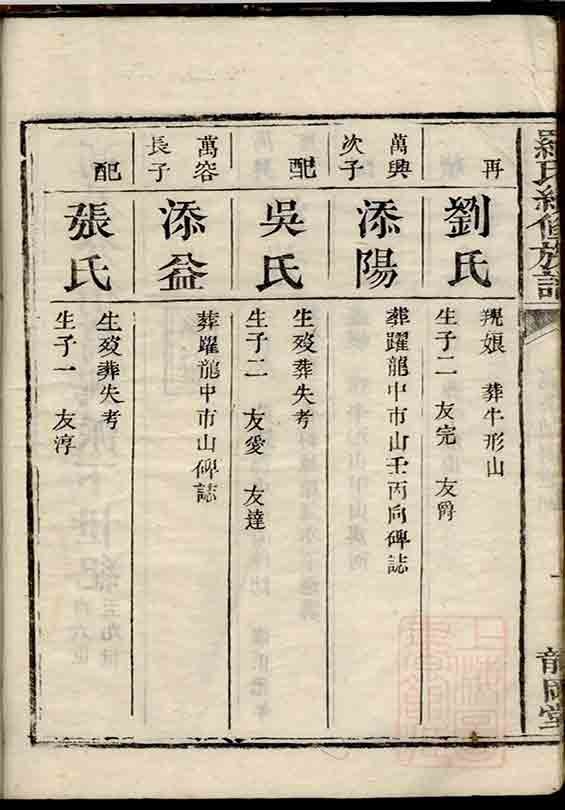 羅氏續修族譜
龍岡堂
再
劉氏
㚻娘 葬牛形山
生子二 友完 友爵
萬興
次子
添陽
葬躍龍中市山壬丙向碑誌
配
吳氏
生歿葬失考
生子二 友愛 友達
萬容
長子
添益
葬躍龍中市山碑誌
配
張氏
生歿葬失考
生子一 友淳